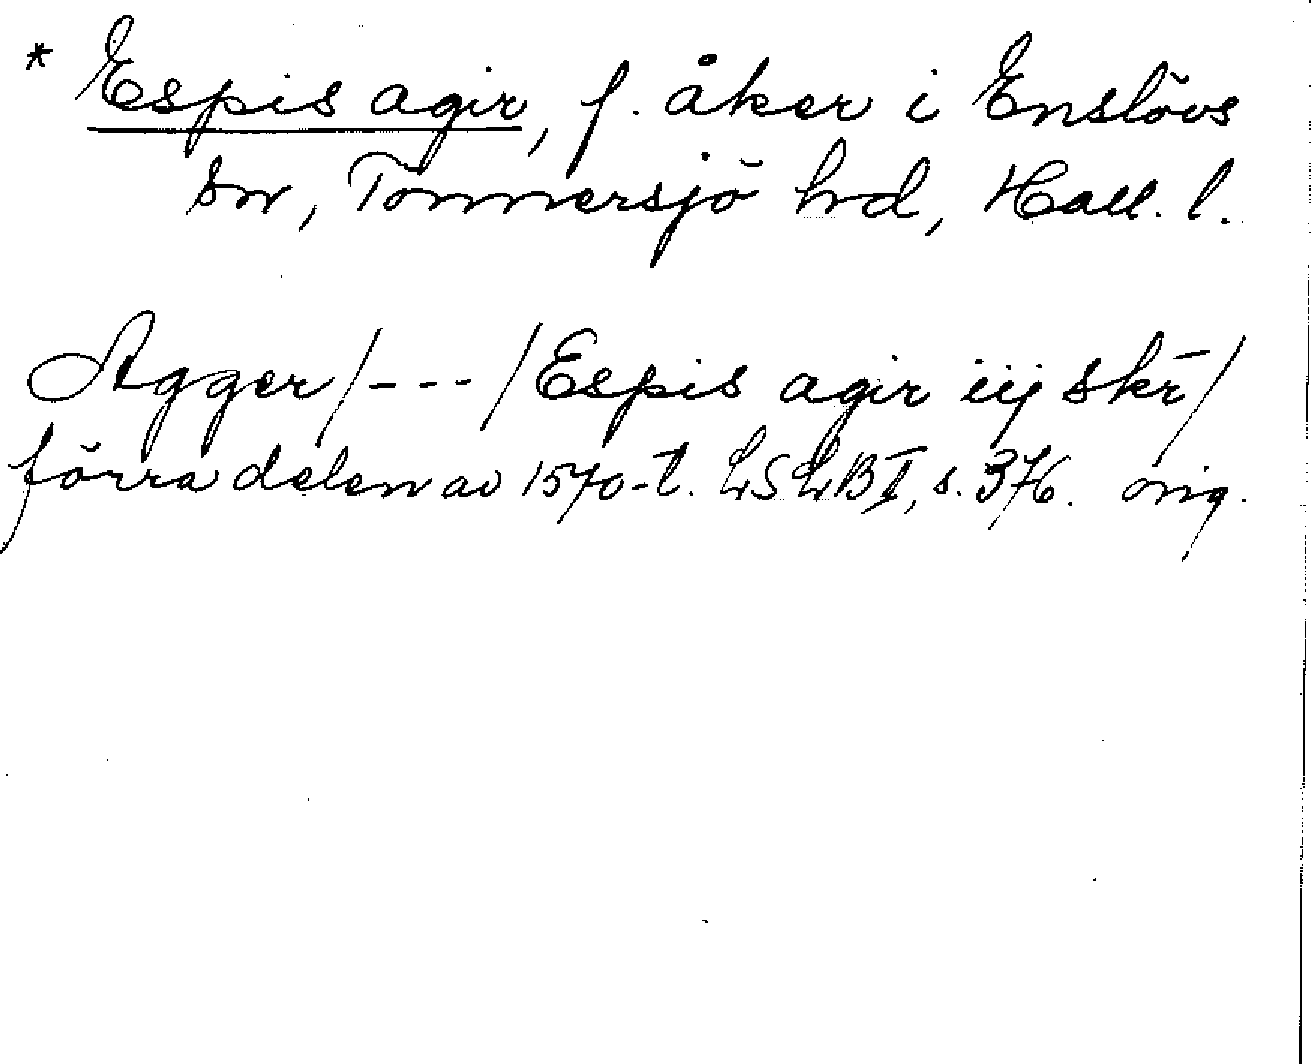 * Espis agir, f. åker i Enslövs
sn, Tönnersjö hrd, Hall. l.
Agger /---/ Espis agir iij skr̄ /
förra delen av 1570-t. LSLB I, s. 376. orig.